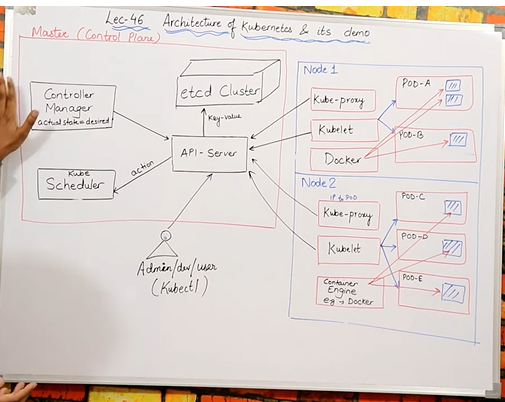 Lec-46 Architecture of Kubernetes & its demo
Master (Control Plane)
Controller
Manager
actual state = desired
etcd Cluster
Key-value
API-Server
action
Kube
Scheduler
Admin/dev/user
(Kubectl)
Node 1
Kube-proxy
Kubelet
Docker
POD-A
POD-B
Node 2
IP to POD
Kube-proxy
Kubelet
Container
Engine
eg → Docker
POD-C
POD-D
POD-E